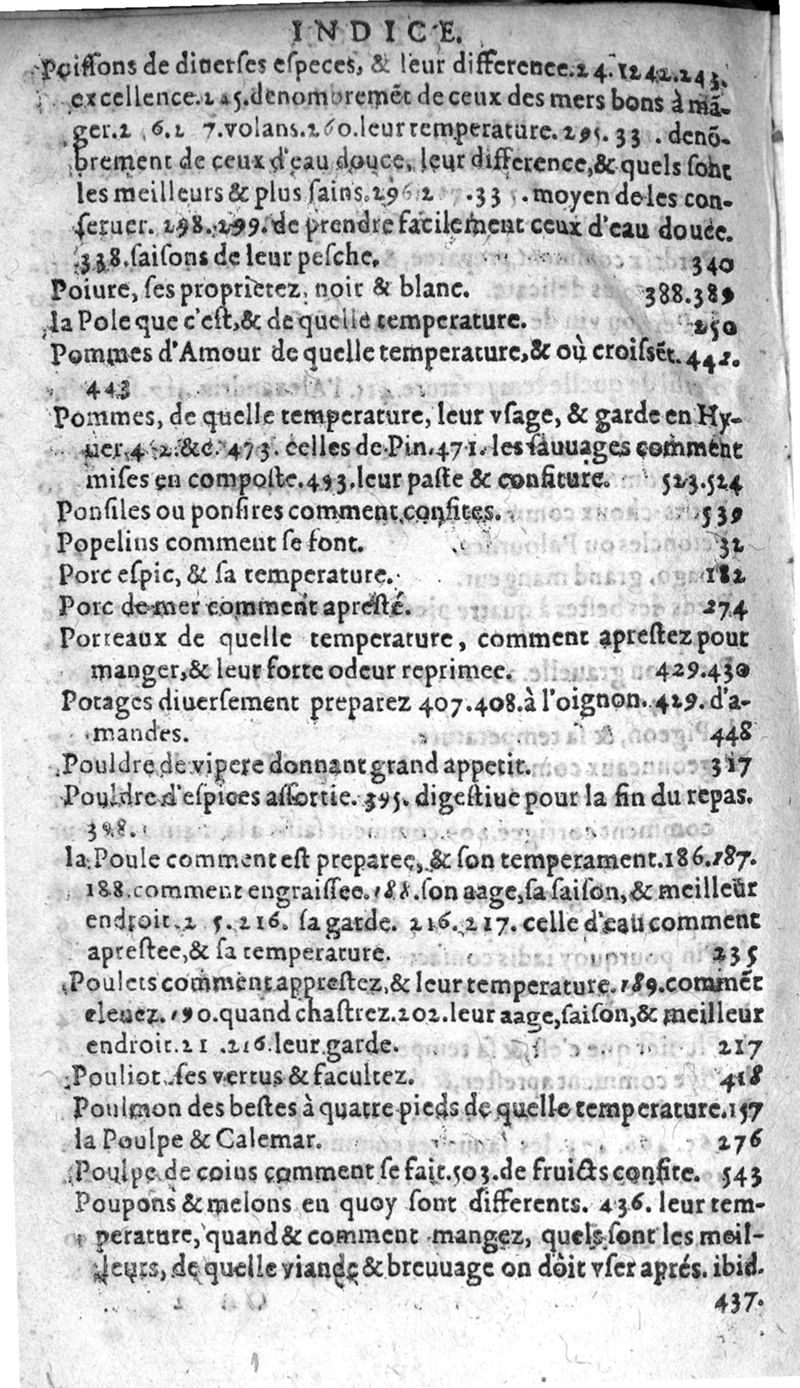 INDICE.
Poissons de diuerses especes, & leur difference.24.1242.243.
excellence.245.denombremẽt de ceux des mers bons à mã-
ger.2 6.2 7.volans.260.leur temperature.295.33 .denõ-
brement de ceux d'eau douce, leur difference,& quels sont
les meilleurs & plus sains.296 2 .33 .moyen de les con-
seruer. 298.299. de prendre facilement ceux d'eau douce.
338.saisons de leur pesche, 340
Poiure, ses proprietez, noir & blanc. 388.389
la Pole que c'est,& de quelle temperature. 250
Pommes d'Amour de quelle temperature,& où croissẽt.442.
443
Pommes, de quelle temperature, leur vsage, & garde en Hy-
uer.4 2.&c. 473. celles de Pin.471. les sauuages comment
mises en composte.493.leur paste & confiture. 523.524
Ponsiles ou ponsires comment confites. 539
Popelins comment se font. 32
Porc espic, & sa temperature. 182
Porc de mer comment apresté. 274
Porreaux de quelle temperature, comment aprestez pour
manger,& leur forte odeur reprimee. 429.430
Potages diuersement preparez 407.408.à l'oignon. 429. d'a-
mandes. 448
Pouldre de vipere donnant grand appetit. 317
Pouldre d'espices assortie. 395. digestiue pour la fin du repas.
398.
la Poule comment est preparee, & son temperament.186.187.
188.comment engraissee.188.son aage,sa saison,& meilleur
endroit.2 5.216. sa garde. 216.217. celle d'eau comment
aprestee,& sa temperature. 235
Poulets comment apprestez,& leur temperature.189.commẽt
eleuez.190.quand chastrez.202.leur aage,saison,& meilleur
endroit.21 .216.leur garde. 217
Pouliot ses vertus & facultez. 418
Poulmon des bestes à quatre pieds de quelle temperature.157
la Poulpe & Calemar. 276
Poulpe de coins comment se fait.503.de fruicts confite. 543
Poupons & melons en quoy sont differents. 436. leur tem-
perature, quand & comment mangez, quels sont les meil-
leurs, de quelle viande & breuuage on doit vser aprés. ibid.
437.